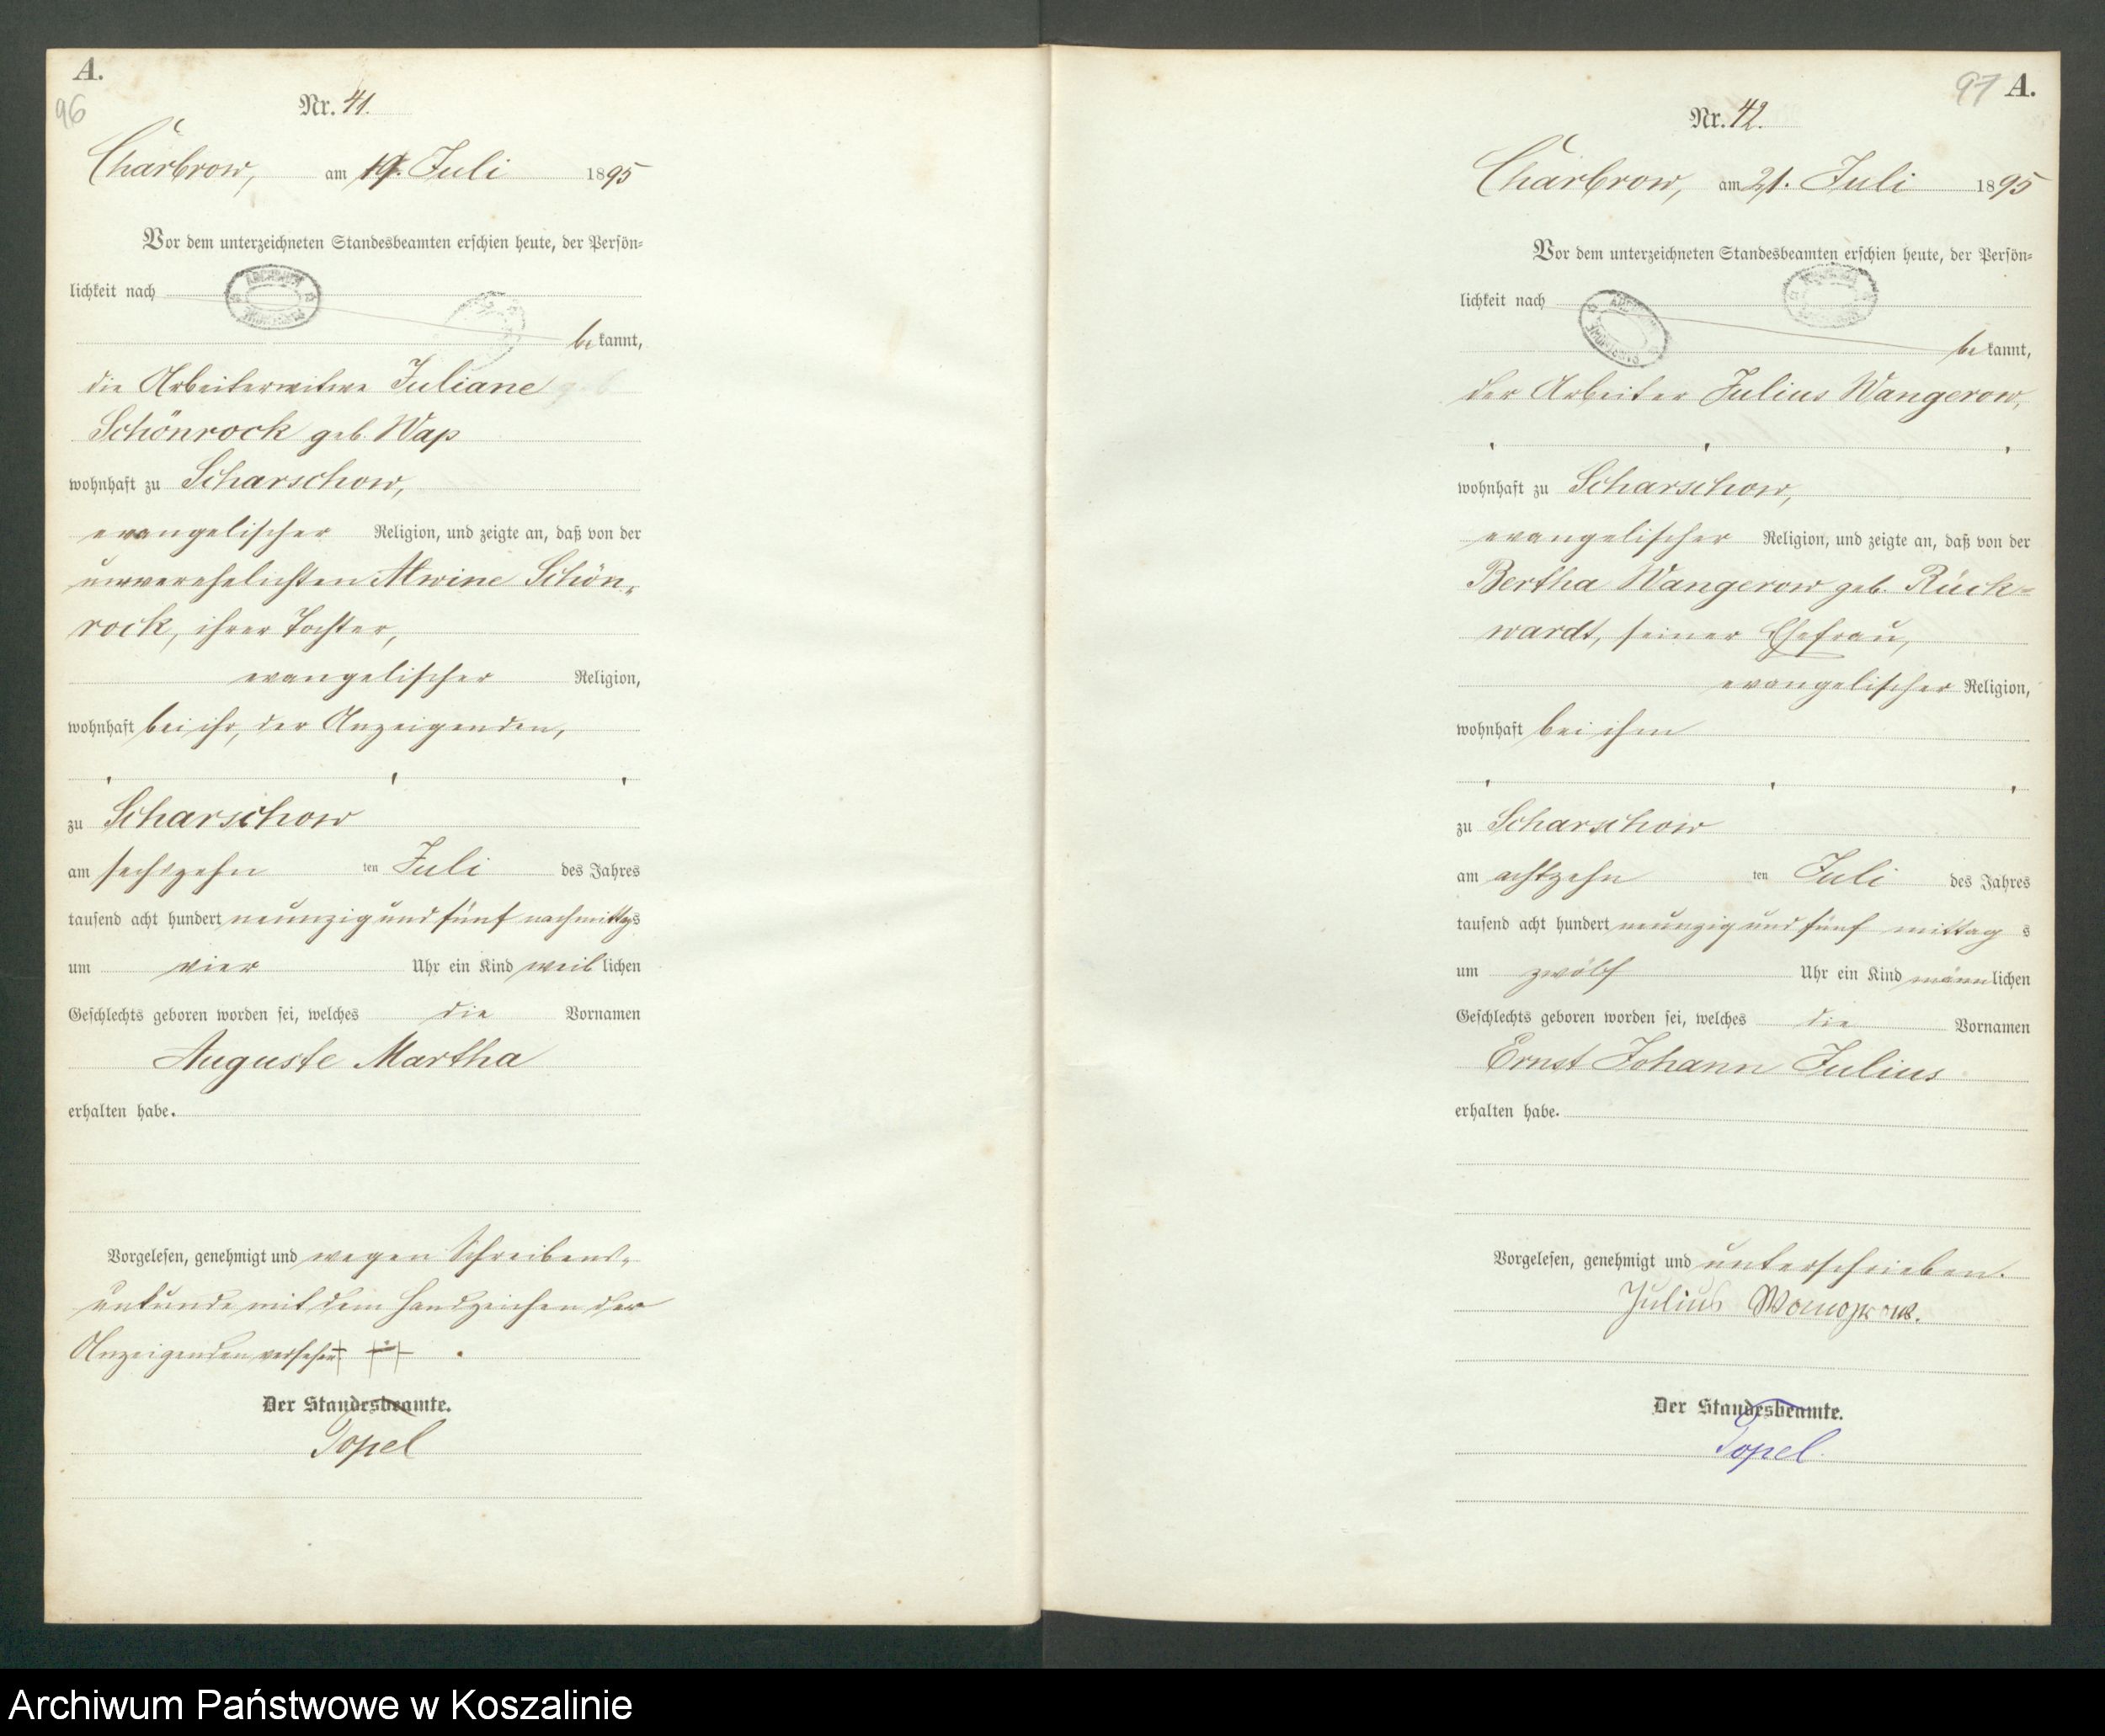 A.
96
Nr. 41.
Charbrow, am 19. Juli 1895
Vor dem unterzeichneten Standesbeamten erschien heute, der Persön-
lichkeit nach
bekannt,
die Arbeiterwitwe Juliane
Schönrock geb. Wap
wohnhaft zu Scharschow,
evangelischer Religion, und zeigte an, daß von der
unverehelichten Alwine Schön-
rock, ihrer Tochter,
evangelischer Religion,
wohnhaft bei ihr, der Anzeigenden,
zu Scharschow
am sechszehn ten Juli des Jahres
tausend acht hundert neunzig und fünf nachmittags
um vier Uhr ein Kind weiblichen
Geschlechts geboren worden sei, welches die Vornamen
Auguste Martha
erhalten habe.
Vorgelesen, genehmigt und wegen Schreibens-
unkunde mit dem Handzeichen der
Anzeigenden versehen. +++
Der Standesbeamte.
Topel
97 A.
Nr. 42.
Charbrow, am 21. Juli 1895
Vor dem unterzeichneten Standesbeamten erschien heute, der Persön-
lichkeit nach
bekannt,
der Arbeiter Julius Wangerow,
wohnhaft zu Scharschow,
evangelischer Religion, und zeigte an, daß von der
Bertha Wangerow geb. Rück-
wardt, seiner Ehefrau,
evangelischer Religion,
wohnhaft bei ihm
zu Scharschow
am achtzehn ten Juli des Jahres
tausend acht hundert neunzig und fünf mittag s
um zwölf Uhr ein Kind männlichen
Geschlechts geboren worden sei, welches die Vornamen
Ernst Johann Julius
erhalten habe.
Vorgelesen, genehmigt und unterschrieben.
Julius Wangerow.
Der Standesbeamte.
Topel.
Archiwum Państwowe w Koszalinie